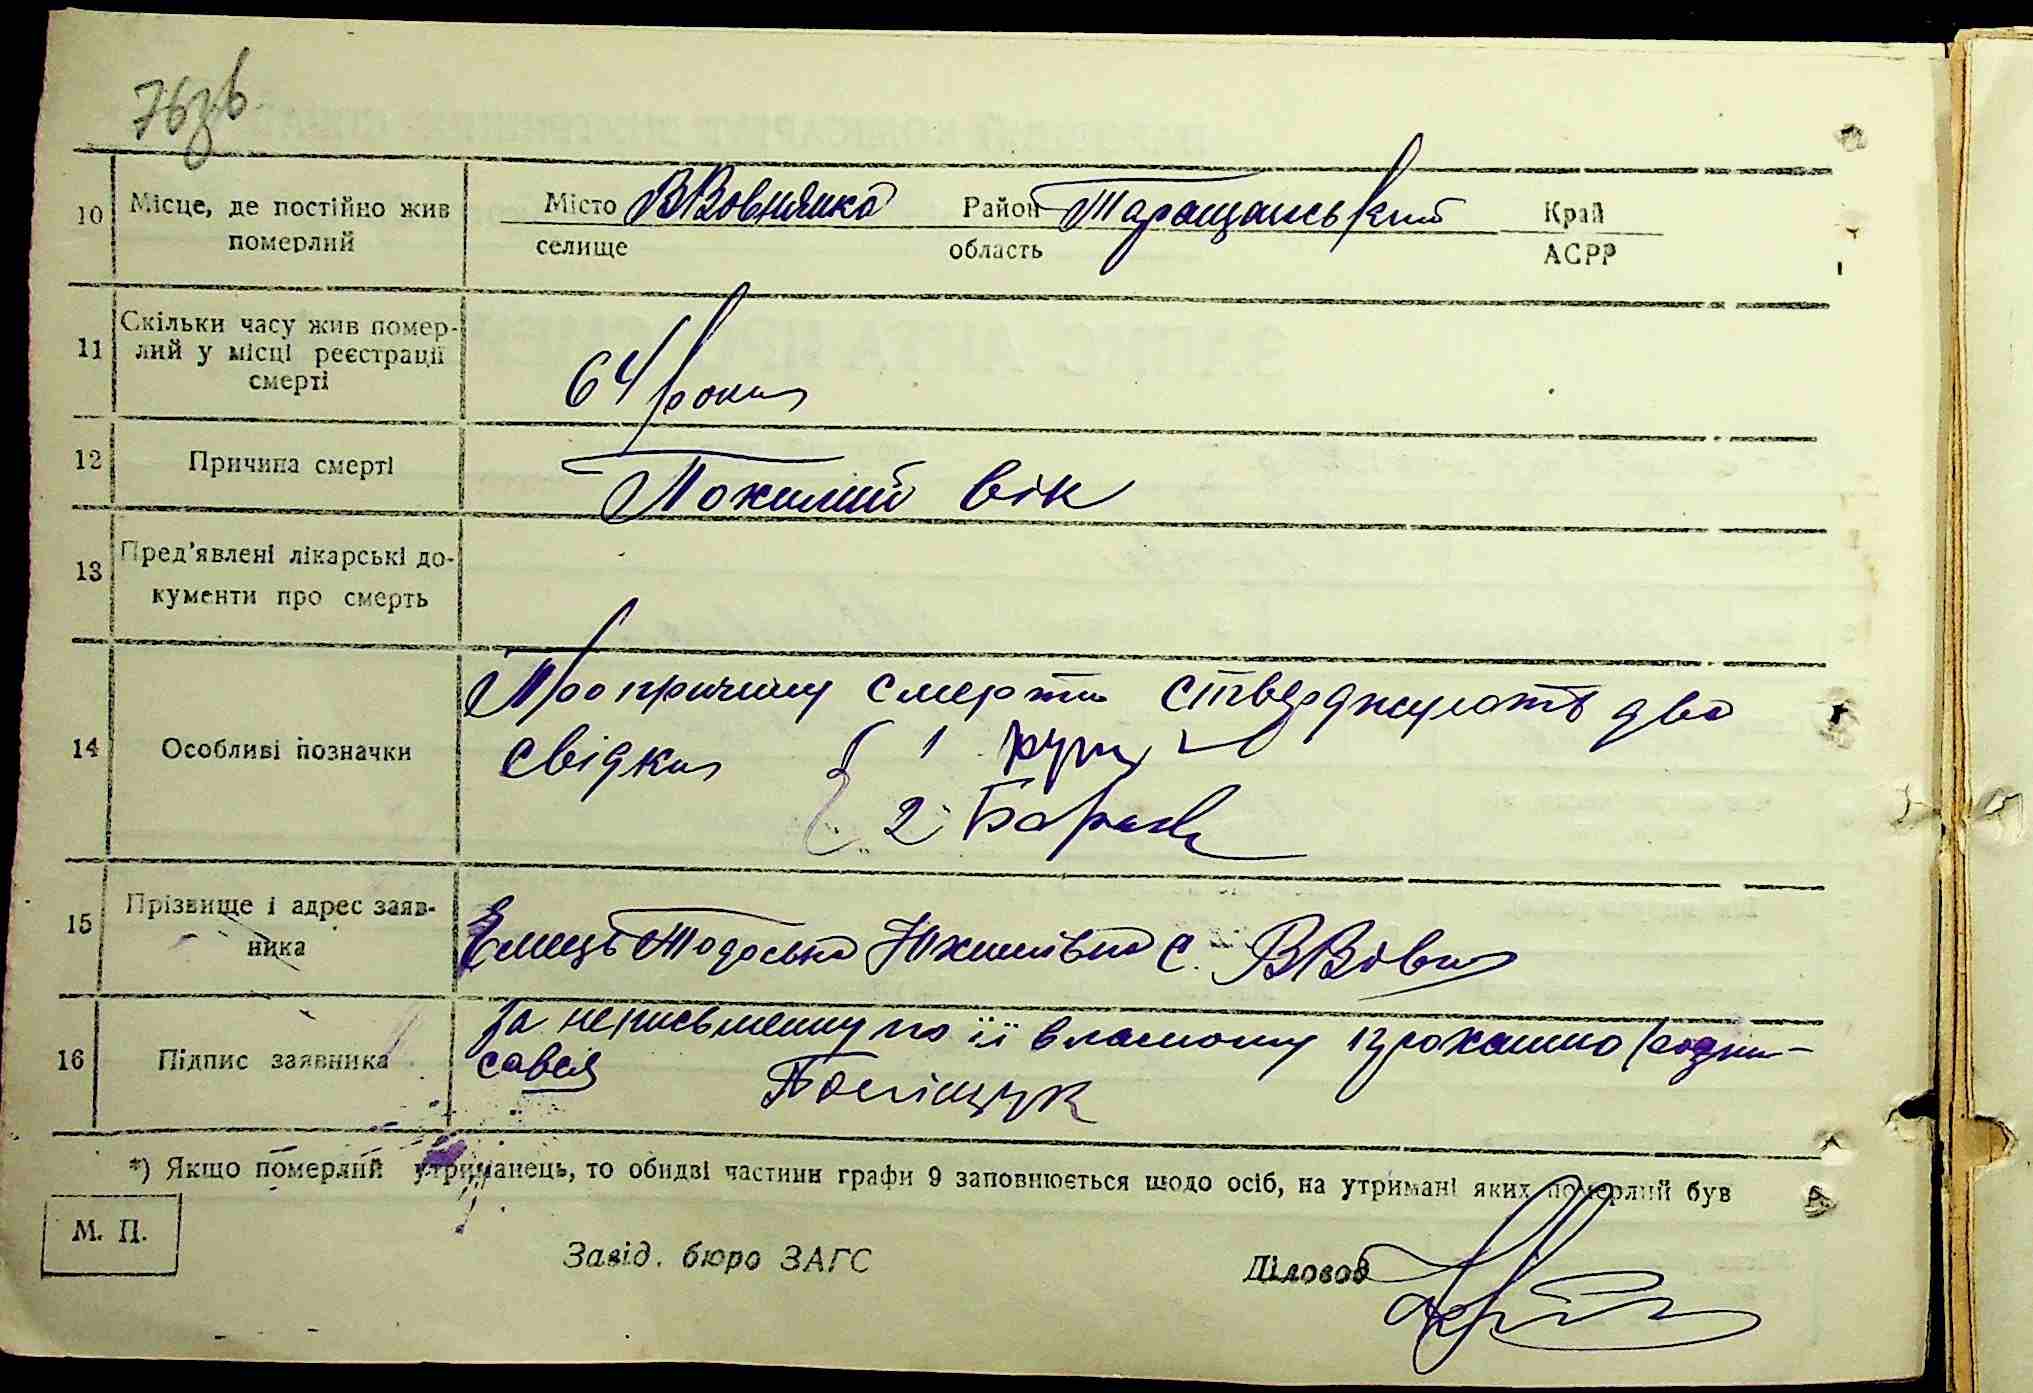 76зв
10 Місце, де постійно жив Місто ВВовнянка Район Таращанський Край
померлий селище область АСРР
Скільки часу жив помер-
11 лий у місці реєстрації 64 роки
смерті
12 Причина смерті Похилий вік
13 Пред'явлені лікарські до-
кументи про смерть
Про причину смерти стверджують два
14 Особливі позначки свідки { 1
2
15 Прізвище і адрес заяв- Ємець Тодоська Юхимівна с. ВВовн
ника
За неписьменну по її власному проханню розпи-
16 Підпис заявника савсь Поліщук
*) Якщо померлий утриманець, то обидві частини графи 9 заповнюється щодо осіб, на утримані яких померлий був
М. П.
Завід. бюро ЗАГС Діловод